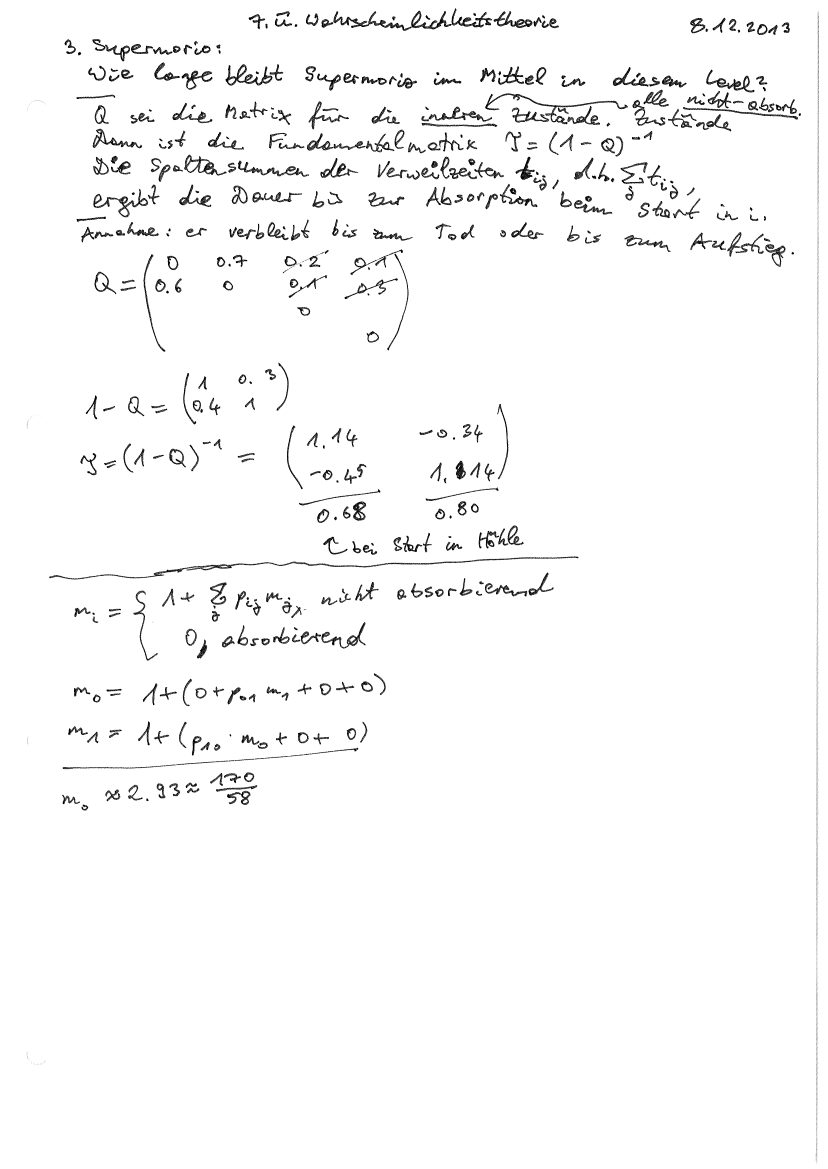 7. Ü. Wahrscheinlichkeitstheorie 8.12.2013
3. Supermario:
Wie lange bleibt Supermario im Mittel in diesem Level?
alle nicht-absorb. Zustände
Q sei die Matrix für die inneren Zustände.
Dann ist die Fundamentalmatrix T = (1 - Q)⁻¹
Die Spaltensummen der Verweilzeiten t_ij, d.h. Σ_j t_ij,
ergibt die Dauer bis zur Absorption beim Start in i.
Annahme: er verbleibt bis zum Tod oder bis zum Aufstieg.
Q = ( 0 0.7 0.2 0.1
0.6 0 0.1 0.3
0
0 )
1 - Q = ( 1 0.3
0.4 1 )
T = (1 - Q)⁻¹ = ( 1.14 -0.34
-0.45 1.14 )
0.68 0.80
↑ bei Start in Höhle
m_i = { 1 + Σ_j p_ij m_j, nicht absorbierend
0, absorbierend
m_0 = 1 + (0 + p_01 m_1 + 0 + 0)
m_1 = 1 + (p_10 · m_0 + 0 + 0)
m_0 ≈ 2.93 ≈ 170/58